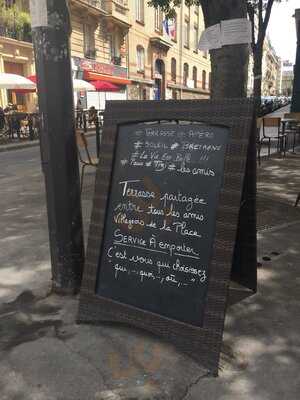 # Terrasse # Apéro
# Soleil # Bretagne
# La Vie Est Belle !!!
# les amis
Terrasse partagée
entre tous les amis
Villageois de la Place
Service À emporter.
C'est vous qui choisissez
qui, ..., quoi, ..., où, ... "